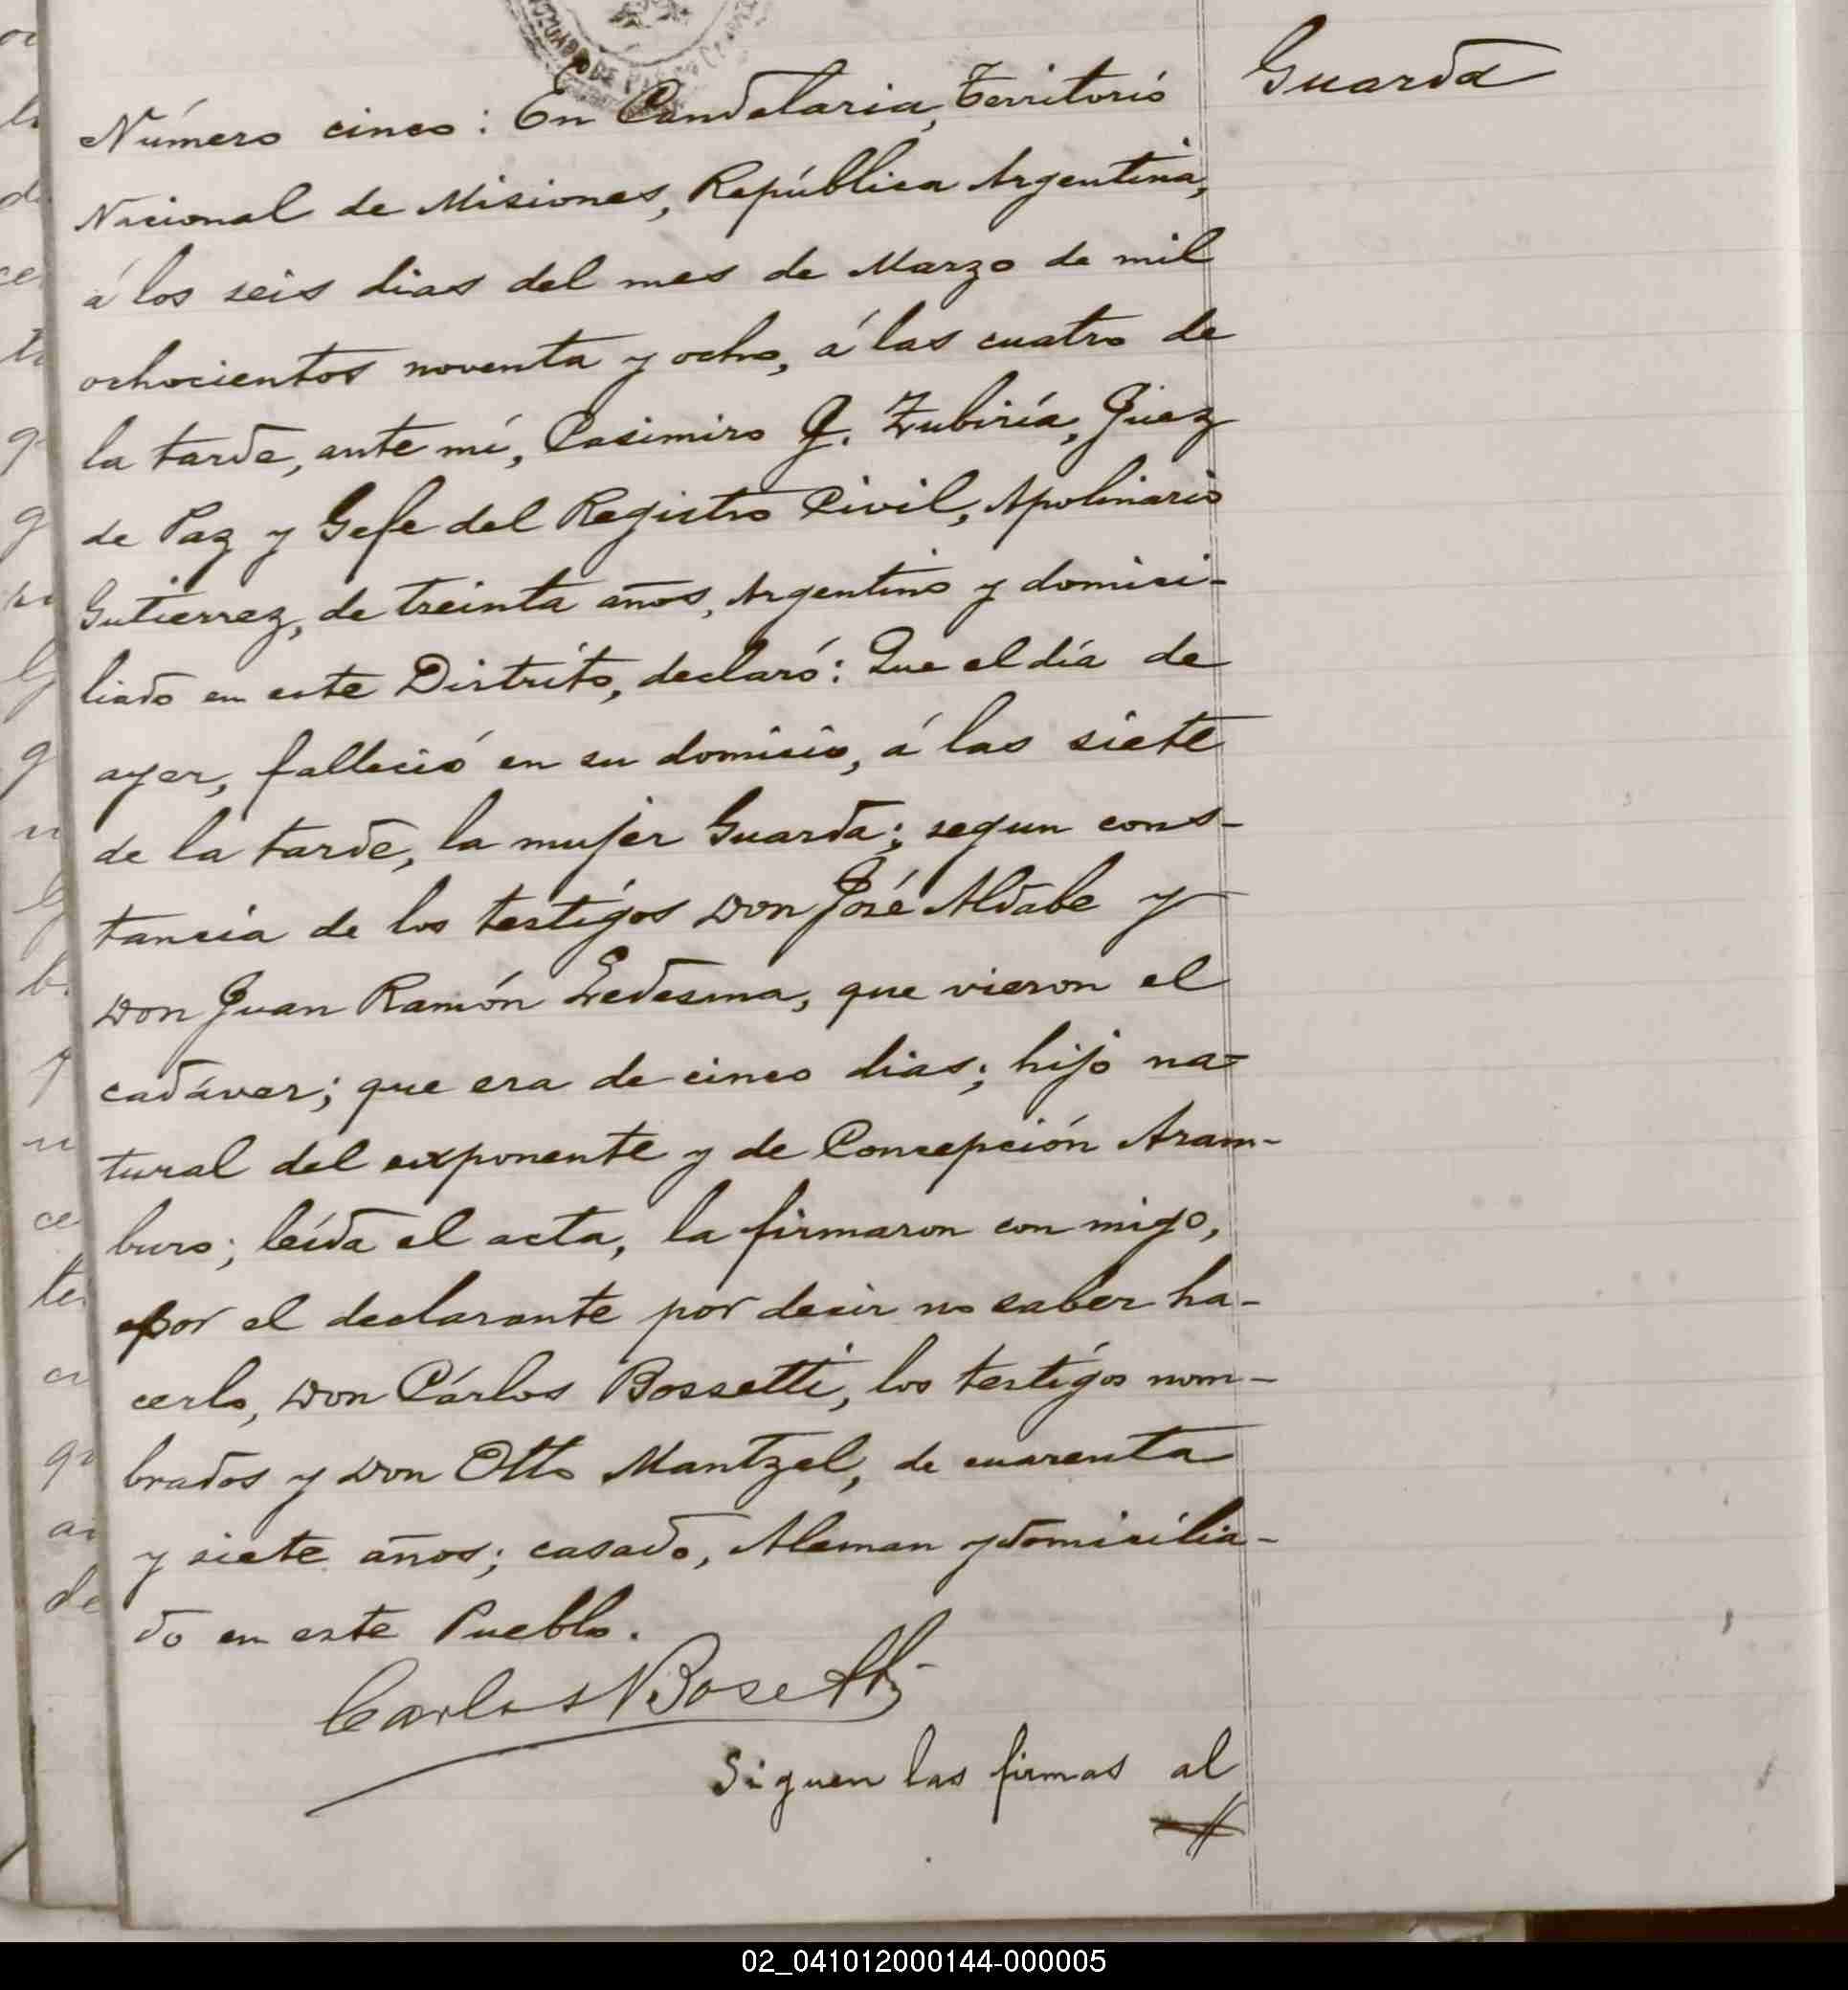 Guarda
Número cinco: En Candelaria, Territorio
Nacional de Misiones, República Argentina,
á los seis dias del mes de Marzo de mil
ochocientos noventa y ocho, á las cuatro de
la tarde, ante mí, Casimiro G. Zubiría, Juez
de Paz y Gefe del Registro Civil, Apolinario
Gutierrez, de treinta años, Argentino y domici-
liado en este Distrito, declaró: Que el día de
ayer, falleció en su domicio, á las siete
de la tarde, la mujer Guarda; segun cons-
tancia de los testigos Don José Aldabe y
Don Juan Ramón Ledesma, que vieron el
cadáver; que era de cinco dias; hijo na-
tural del exponente y de Concepción Aram-
buro; leída el acta, la firmaron con migo,
por el declarante por decir no saber ha-
cerlo, Don Cárlos Bossetti, los testigos nom-
brados y Don Otto Mantzel, de cuarenta
y siete años; casado, Aleman y domicilia-
do en este Pueblo.
Carlos Bosetti
Siguen las firmas al
02_041012000144-000005